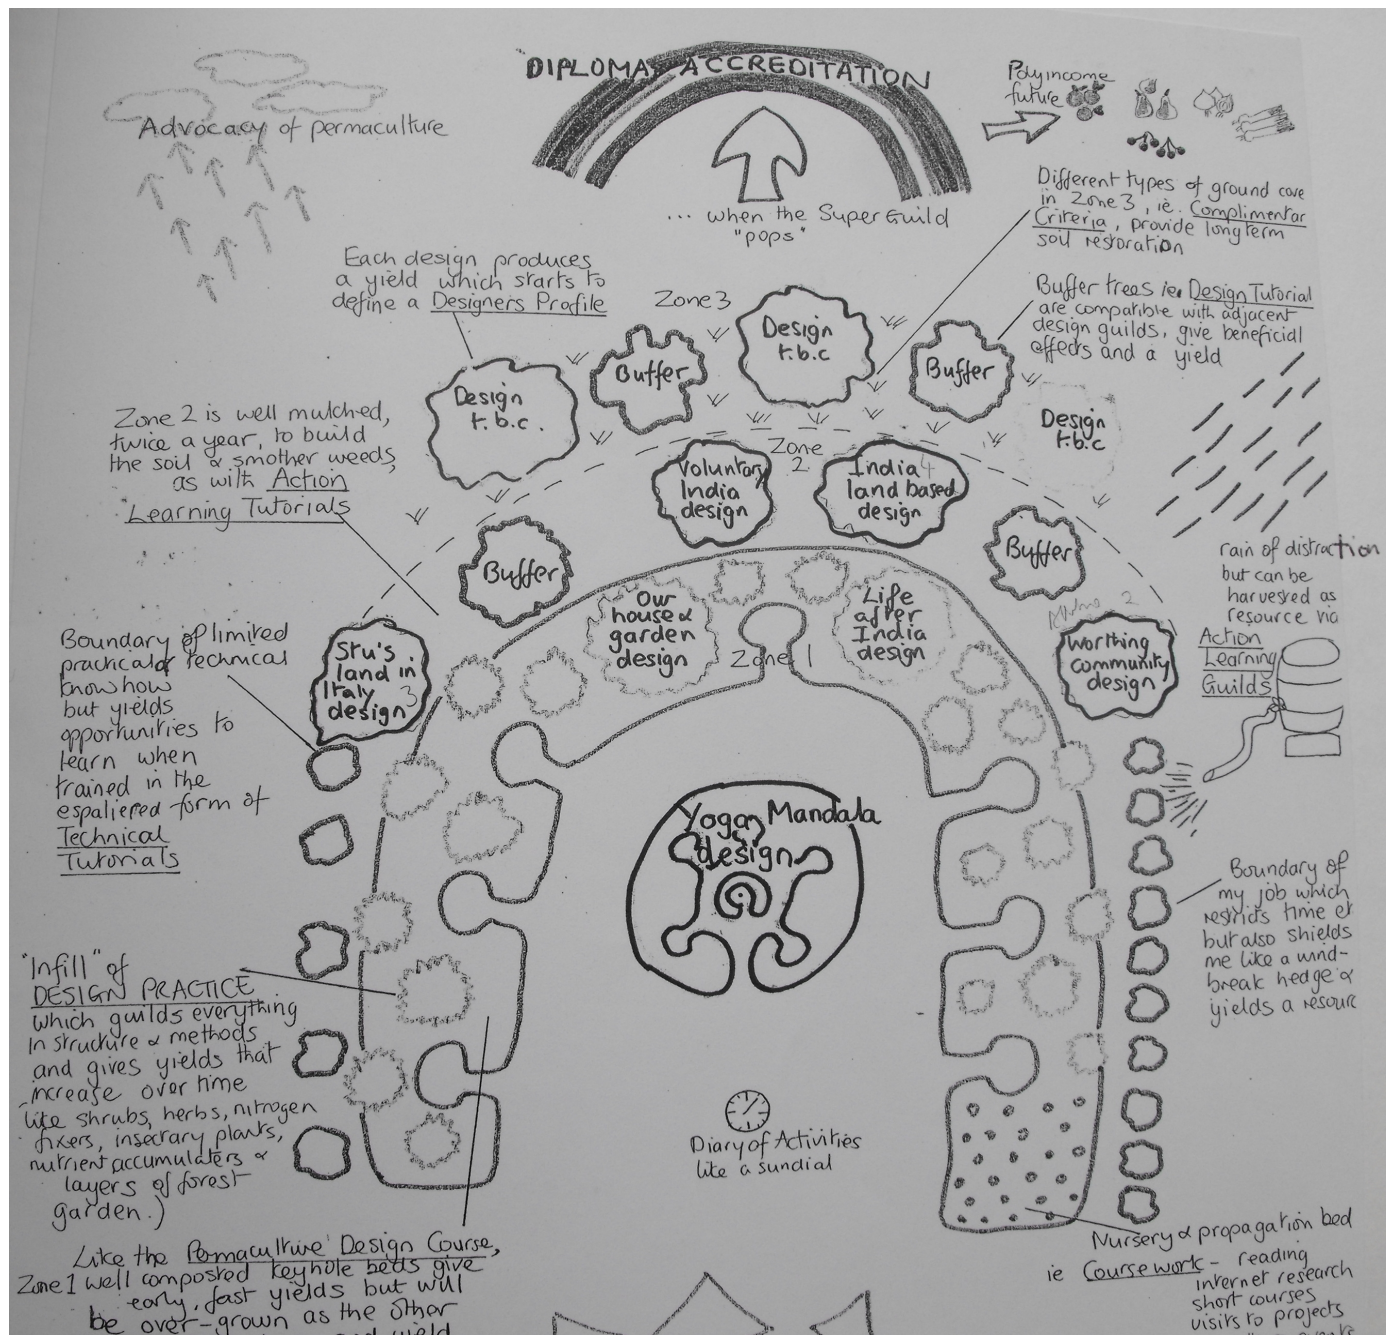 DIPLOMA ACCREDITATION
Polyincome
future
Advocacy of permaculture
... when the SuperGuild
"pops"
Different types of ground cove
in Zone 3, ie. Complimentar
Criteria, provide longterm
soil restoration
Each design produces
a yield which starts to
define a Designers Profile
Zone 3
Buffer trees ie. Design Tutorial
are compatible with adjacent
design guilds, give beneficial
effects and a yield
Design
t.b.c
Buffer
Buffer
Design
t.b.c.
Design
t.b.c
Zone 2 is well mulched,
twice a year, to build
the soil & smother weeds,
as with Action
Learning Tutorials
Zone
2
Voluntary
India
design
India 4
land based
design
Buffer
Buffer
rain of distraction
but can be
harvested as
resource via
Action
Learning
Guilds
Our
house &
garden
design
Life
after
India
design
Zone 1
Boundary of limited
practical & technical
know how
but yields
opportunities to
learn when
trained in the
espaliered form of
Technical
Tutorials
Stu's
land in
Italy
design 3
2
Worthing
community
design
Yoga Mandala
design
Boundary of
my job which
restricts time et
but also shields
me like a wind-
break hedge &
yields a resourc
"Infill" of
DESIGN PRACTICE
which guilds everything
in structure & methods
and gives yields that
increase over time
like shrubs, herbs, nitrogen
fixers, insectary plants,
nutrient accumulaters &
layers of forest
garden.)
Diary of Activities
like a sundial
Like the Permaculture Design Course,
Zone 1 well composted keyhole beds give
early, fast yields but will
be over-grown as the other
yield
Nursery & propagation bed
ie Coursework - reading
internet research
short courses
visits to projects